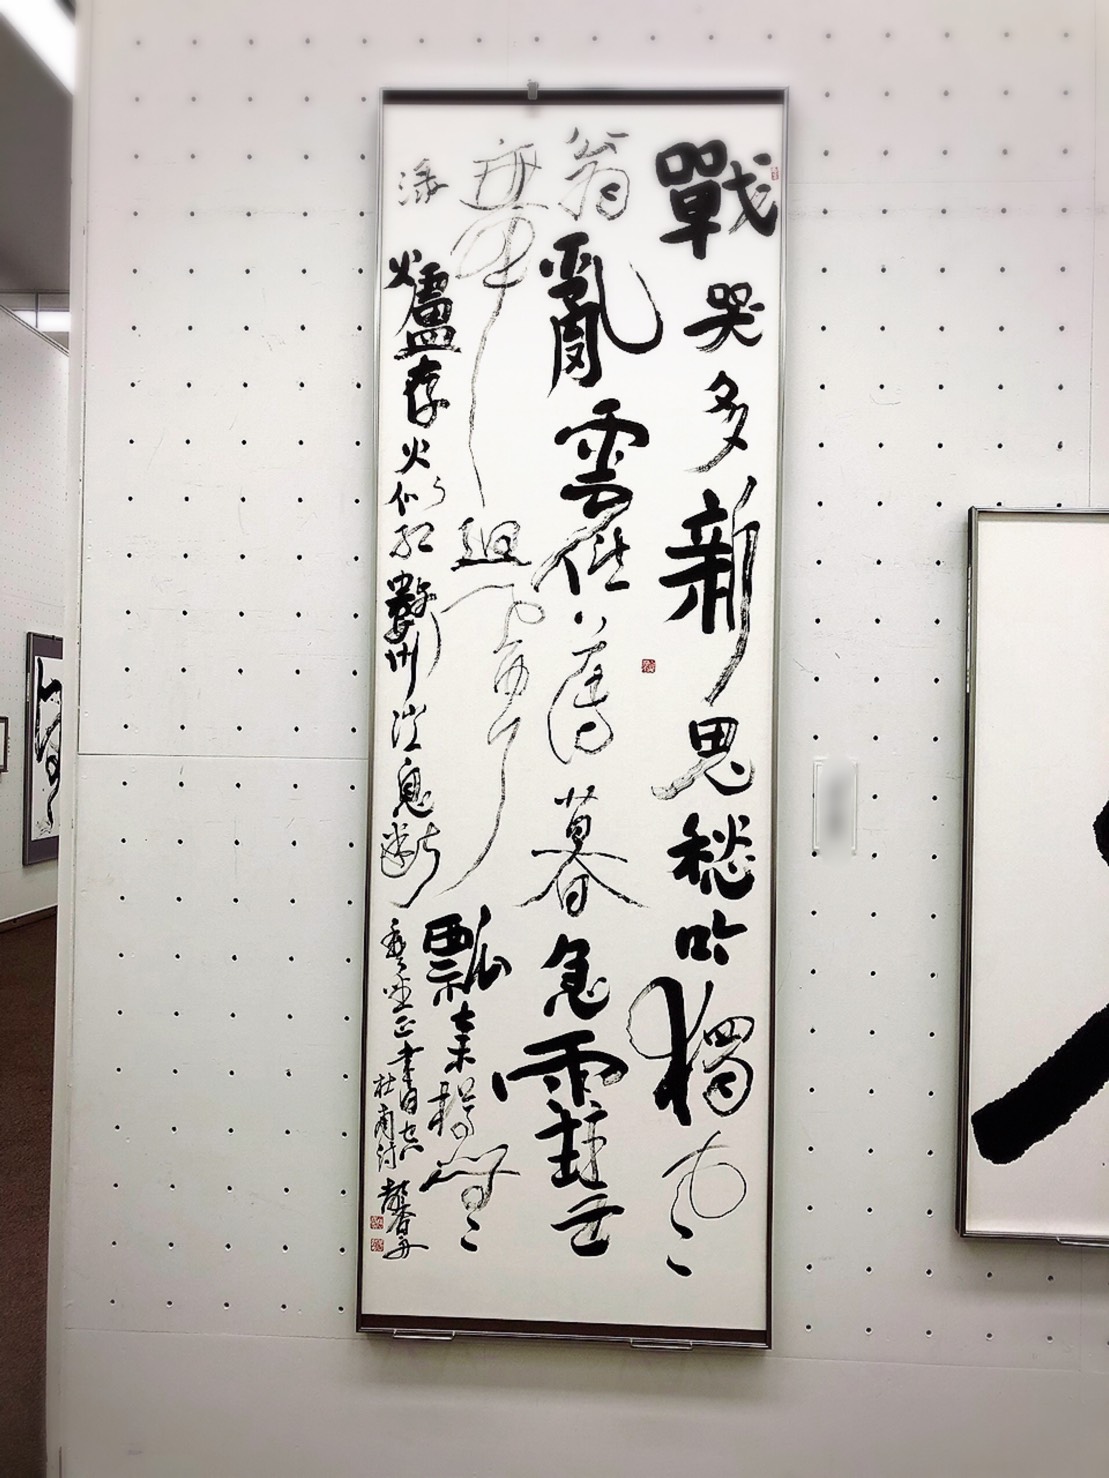 戰哭多新鬼愁吟獨老
翁亂雲低薄暮急雪
舞迴風瓢棄樽無
淥爐存火似紅數州消息斷愁坐正書空
杜甫詩